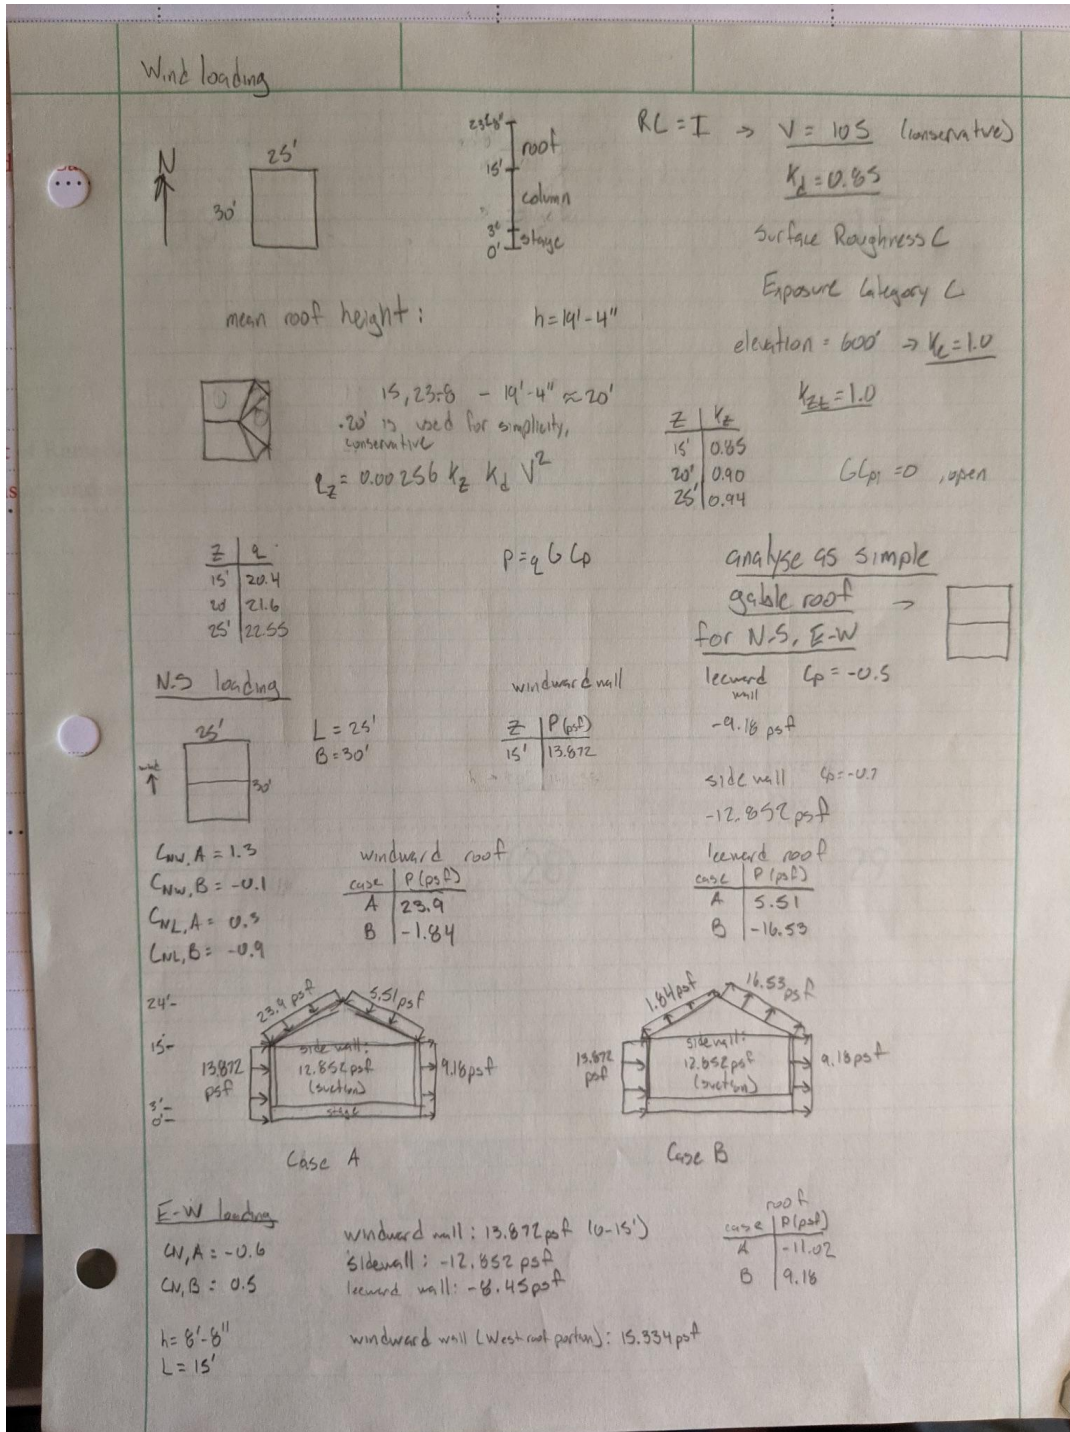 Wind loading
N
25'
30'
23'-8"
roof
15'
column
3'
stage
0'
RC = I → V = 105 (conservative)
Kd = 0.85
Surface Roughness C
Exposure Category C
elevation = 600' → Ke = 1.0
Kzt = 1.0
mean roof height: h = 19'-4"
15, 23'-8 - 19'-4" ≈ 20'
·20' is used for simplicity,
conservative
qz = 0.00256 Kz Kd V²
Z | Kz
15' | 0.85
20' | 0.90
25' | 0.94
GCpi = 0, open
Z | q
15' | 20.4
20 | 21.6
25' | 22.55
P = q G Cp
analyse as simple
gable roof →
for N-S, E-W
N-S loading
25'
wind
30'
L = 25'
B = 30'
windward wall
Z | P (psf)
15' | 13.872
leeward Cp = -0.5
wall
-9.18 psf
side wall Cp = -0.7
-12.852 psf
CNW, A = 1.3
CNW, B = -0.1
CNL, A = 0.3
CNL, B = -0.9
windward roof
case | P (psf)
A | 23.9
B | -1.84
leeward roof
case | P (psf)
A | 5.51
B | -16.53
24'-
15'-
3'-
0'-
23.9 psf
5.51 psf
13.872
psf
side wall:
12.852 psf
(suction)
9.18 psf
stage
Case A
1.84 psf
16.53 psf
13.872
psf
side wall:
12.852 psf
(suction)
9.18 psf
Case B
E-W loading
CN, A = -0.6
CN, B = 0.5
h = 8'-8"
L = 15'
windward wall: 13.872 psf (0-15')
sidewall: -12.852 psf
leeward wall: -8.45 psf
windward wall (West roof portion): 15.334 psf
roof
case | P (psf)
A | -11.02
B | 9.18